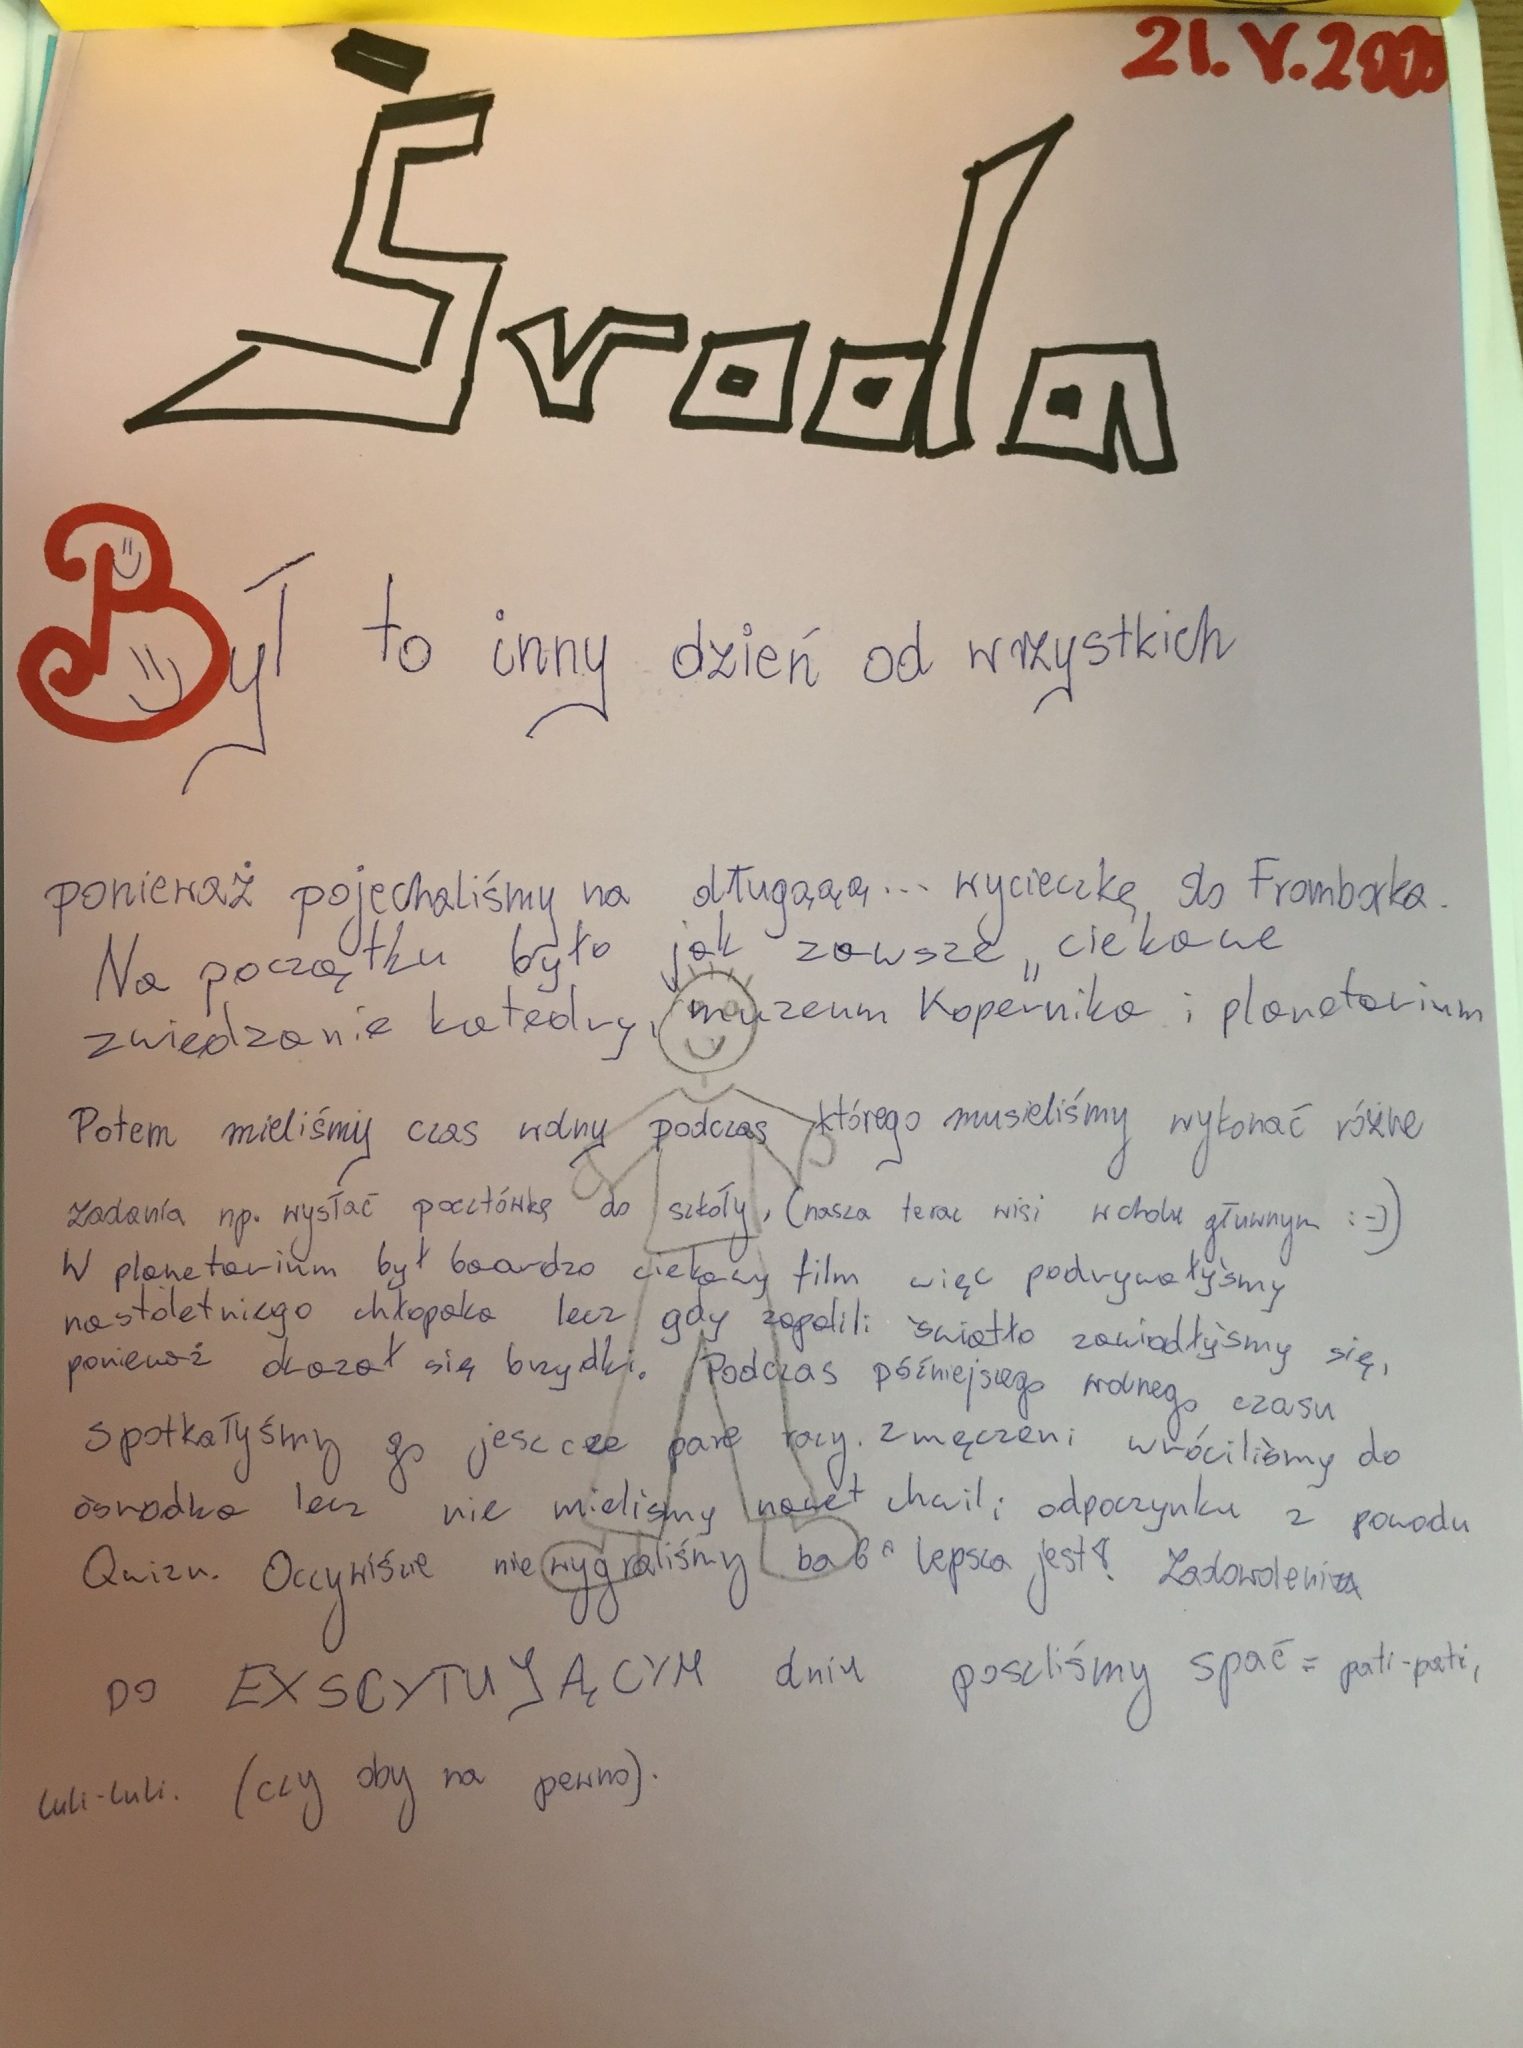 21.V.2003
Środa
Był to inny dzień od wrzystkich
ponieważ pojechaliśmy na długąąą... wycieczkę do Fromborka.
Na początku było jak zawsze „ciekawe
zwiedzanie katedry, muzeum Kopernika i planetarium
Potem mieliśmy czas wolny podczas którego musieliśmy wykonać różne
zadania np. wysłać pocztówkę do szkoły, (nasza teraz wisi w cholu głuwnym :-))
W planetarium był baardzo ciekawy film więc podrywałyśmy
nastoletniego chłopaka lecz gdy zapalili światło zawiodłyśmy się,
ponieważ okazał się brzydki. Podczas późniejszego wolnego czasu
spotkałyśmy go jeszcze parę razy. Zmęczeni wróciliśmy do
ośrodka lecz nie mieliśmy nawet chwili odpoczynku z powodu
Quizu. Oczywiście nie wygraliśmy bo 6a lepsza jest! Zadowoleni
DO EXSCYTUJĄCYM dniu poszliśmy spać = pati-pati,
luli-luli. (czy oby na pewno).